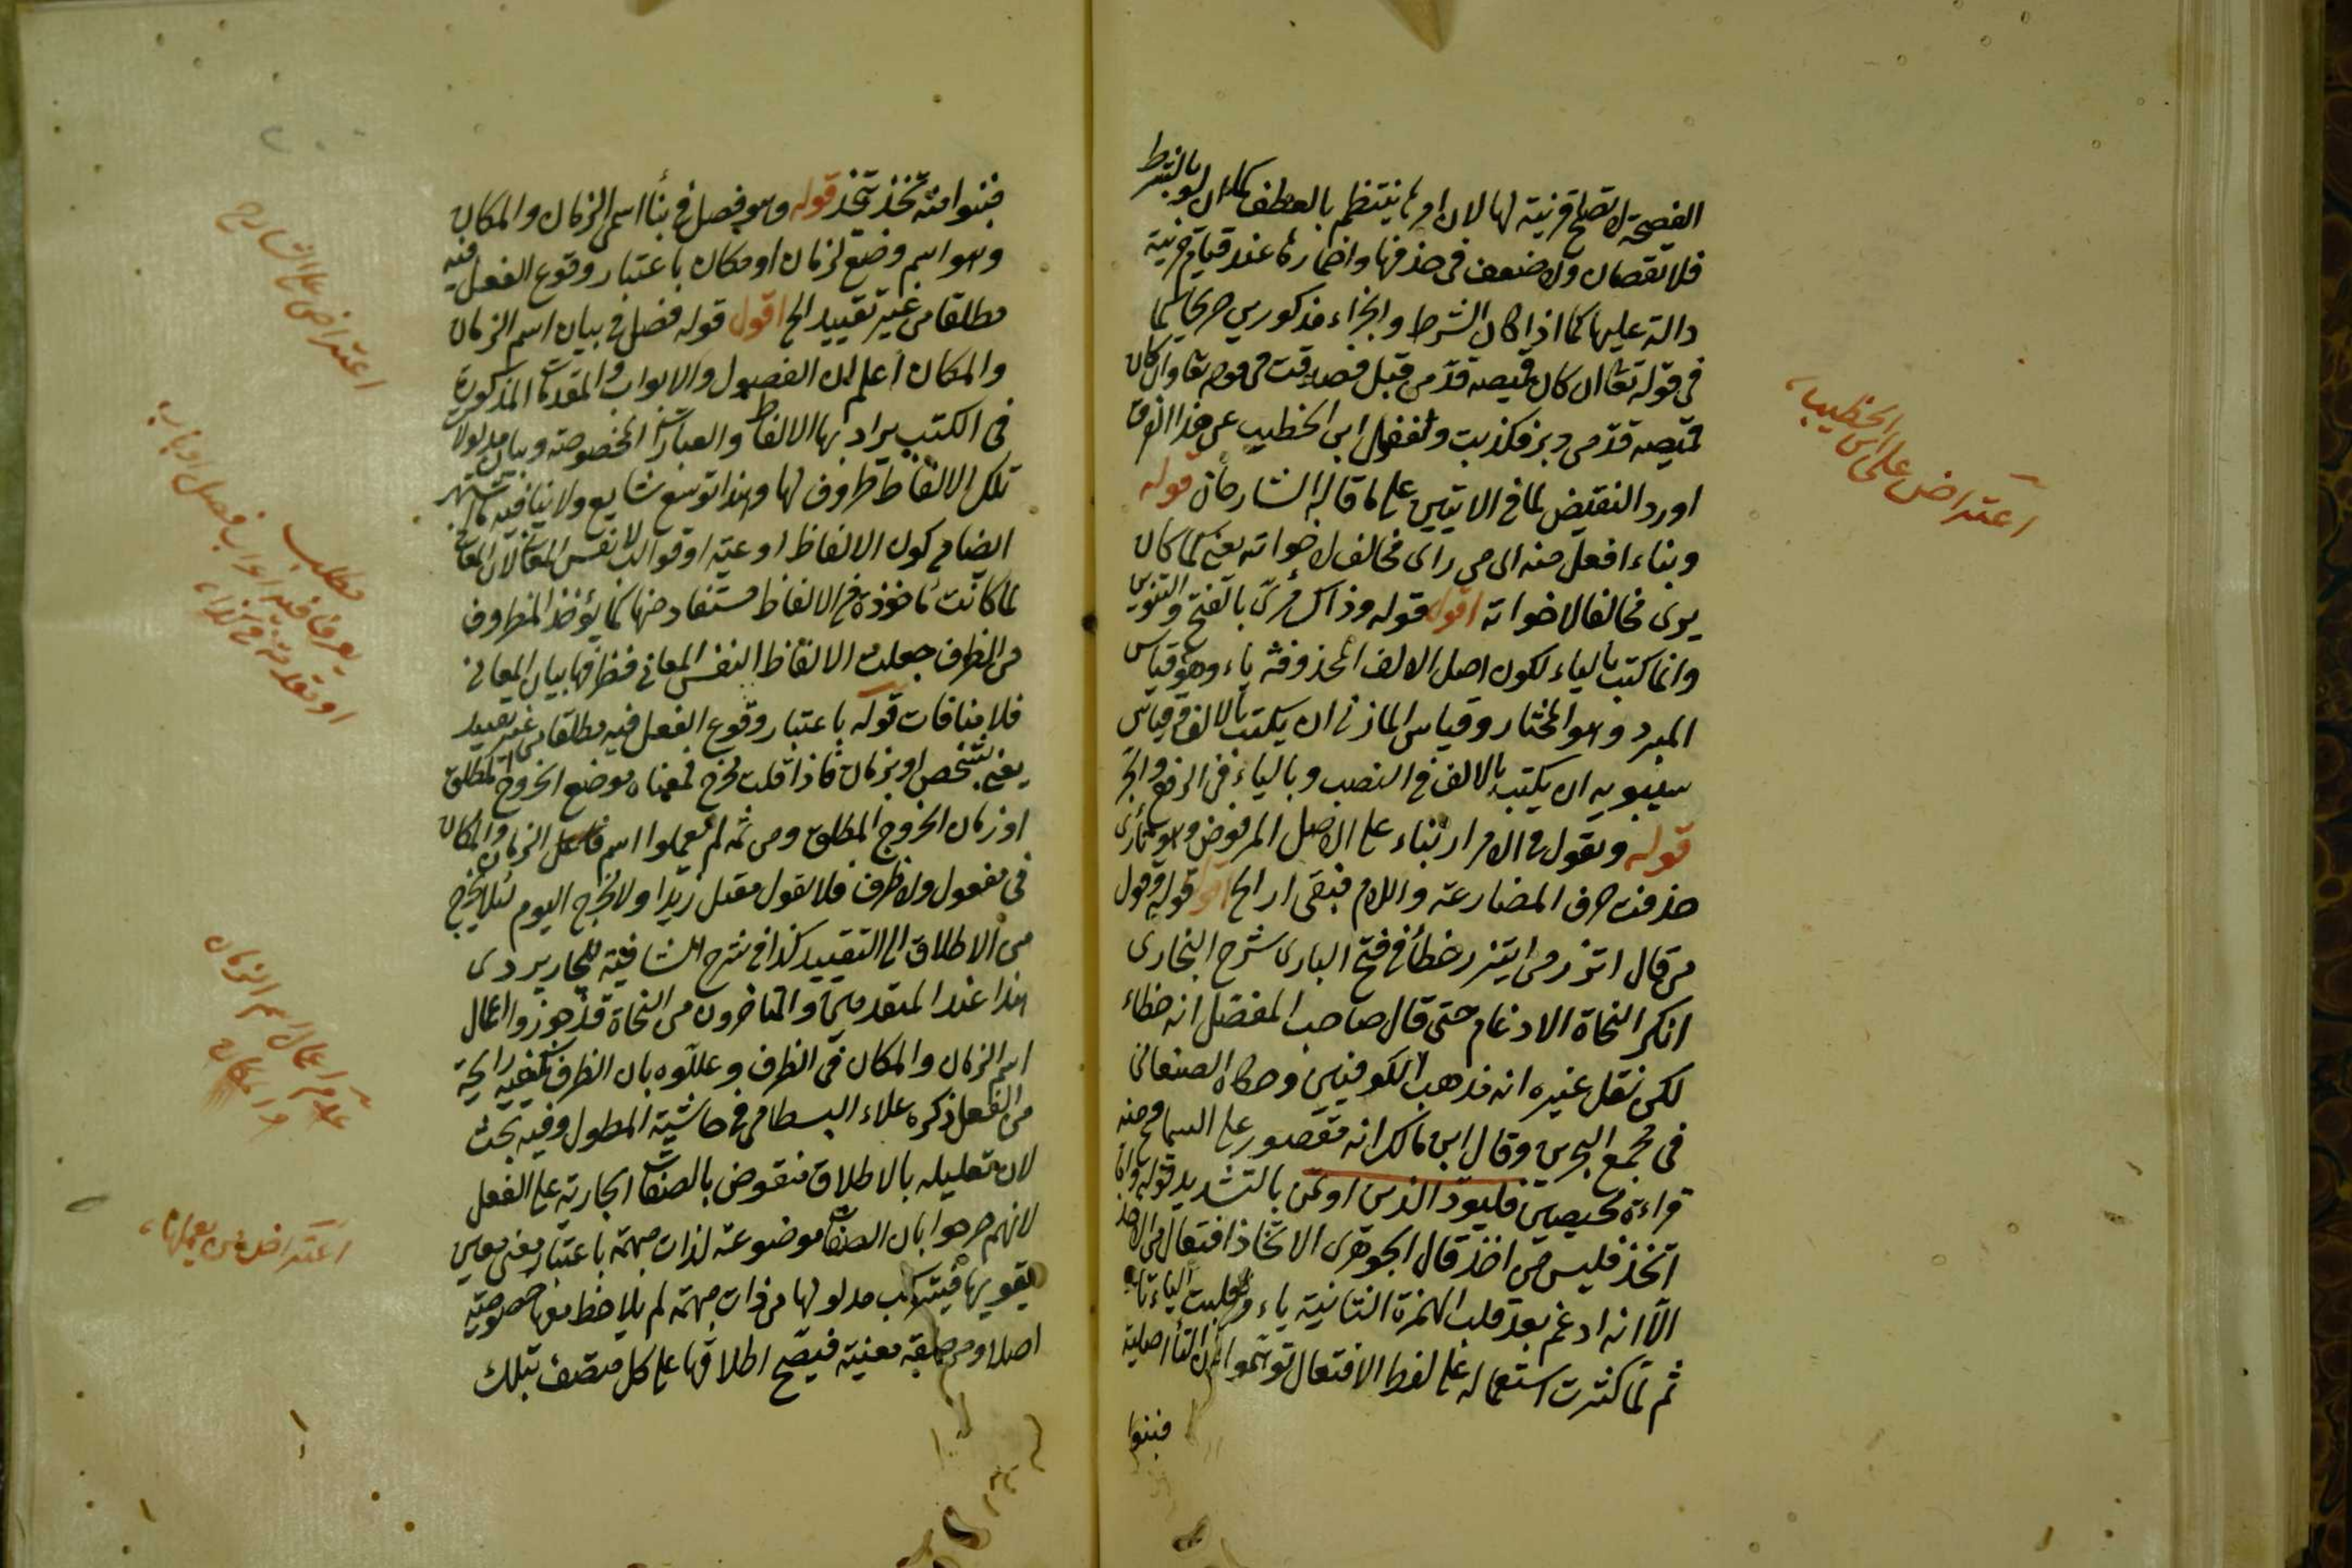 الفصيحة لا تصلح قرينة لها لان امرها ينتظم بالعطف كما ان لو بالشرط
فلا نقصان ولا ضعف فى حذفها واضمارها عند قيام قرينة
دالة عليها كما اذا كان الشرط والجزاء مذكورين صريحا كما
فى قوله تعا ان كان قميصه قدّ من قبل فصدقت فى قوله تعا وان كان
قميصه قدّ من دبر فكذبت ولغفول ابن الخطيب عن هذا الفرق
اورد النقيض بما فى الايتين على ما قاله الشارحان قوله
وبناء افعل منه الى من راى مخالف لاخواته يعنى كما كان
يرى مخالفا لاخواته اقول قوله وذاك مرئى بالفتح والتنوين
وانما كتب بالياء لكون اصل الالف المحذوفة ياء وهو قياس
المبرد وهو المختار وقياس المازنى ان يكتب بالالف وقياس
سيبويه ان يكتب بالالف فى النصب وبالياء فى الرفع والجر
قوله وتقول فى الامر ار بناء على الاصل المرفوض وهو ترأى
حذفت حرف المضارعة واللام فبقى ار الخ اقول قوله وقول
من قال اتزر من ايتزر خطأ فى فتح البارى شرح البخارى
انكر النحاة الادغام حتى قال صاحب المفصل انه خطاء
لكن نقل غيره انه مذهب الكوفيين وحكاه الصنعانى
فى مجمع البحرين وقال ابن مالك انه مقصور على السماع ومنه
قراءة محيصين فليود الذى اوتمن بالتشديد قوله واما
اتخذ فليس من اخذ قال الجوهرى الاتخاذ افتعال من الاخذ
الا انه ادغم بعد قلب الهمزة الثانية ياء وقلبت الياء تاء
ثم لما كثرت استعماله على لفظ الافتعال توهموا ان التأ اصلية
فبنوا
اعتراض على ابن الخطيب
فبنوا منه تخذ يتخذ قوله وهو فصل فى بنأ اسمى الزمان والمكان
وهو اسم وضع لزمان او مكان باعتبار وقوع الفعل فيه
مطلقا من غير تقييد الخ اقول قوله فصل فى بيان اسم الزمان
والمكان اعلم ان الفصول والابواب والمقدمات المذكورة
فى الكتب يراد بها الالفاظ والعبارات المخصوصة وبيان مدلولات
تلك الالفاظ ظروف لها وهذا توسع شايع ولا ينافيه ما اشتهر
ايضا من كون الالفاظ اوعية او قوالب لانفس المعانى لان المعانى
لما كانت مأخوذة من الالفاظ مستفاد منها كما يؤخذ المظروف
من الظرف جعلت الالفاظ لنفس المعانى فظرفها بيان المعانى
فلا منافات قوله باعتبار وقوع الفعل فيه مطلقا من غير تقييد
يعنى بشخص او بزمان فاذا قلت مخرج فمعناه موضع الخروج المطلق
او زمان الخروج المطلق ومن ثمه لم يعملوا اسم الزمان والمكان
فى مفعول ولا ظرف فلا تقول مقتل زيدا ولا مخرج اليوم لئلا يخرج
من الاطلاق الى التقييد كذا فى شرح الشافية للجاربردى
هذا عند المتقدمين والمتأخرون من النحاة قد جوزوا اعمال
اسم الزمان والمكان فى الظرف وعللوه بان الظرف تكفيه رايحة
من الفعل ذكره علاء البسطامى فى حاشية المطول وفيه بحث
لان تعليله بالاطلاق منقوض بالصفات الجارية على الفعل
لانهم صرحوا بان الصفات موضوعة لذات مبهمة باعتبار معنى معين
يقوم بها فيتركب مدلولها من ذات مبهمة لم يلاحظ معها خصوصية
اصلا ومن صفة معينة فيصح اطلاقها على كل متصف بتلك
اعتراض على الشارح
مطلب
يعرفا فيه ابواب فصل او باب
او مقدمة فى كذا
عدم اعمال اسم الزمان
والمكان
اعتراض من يعملها